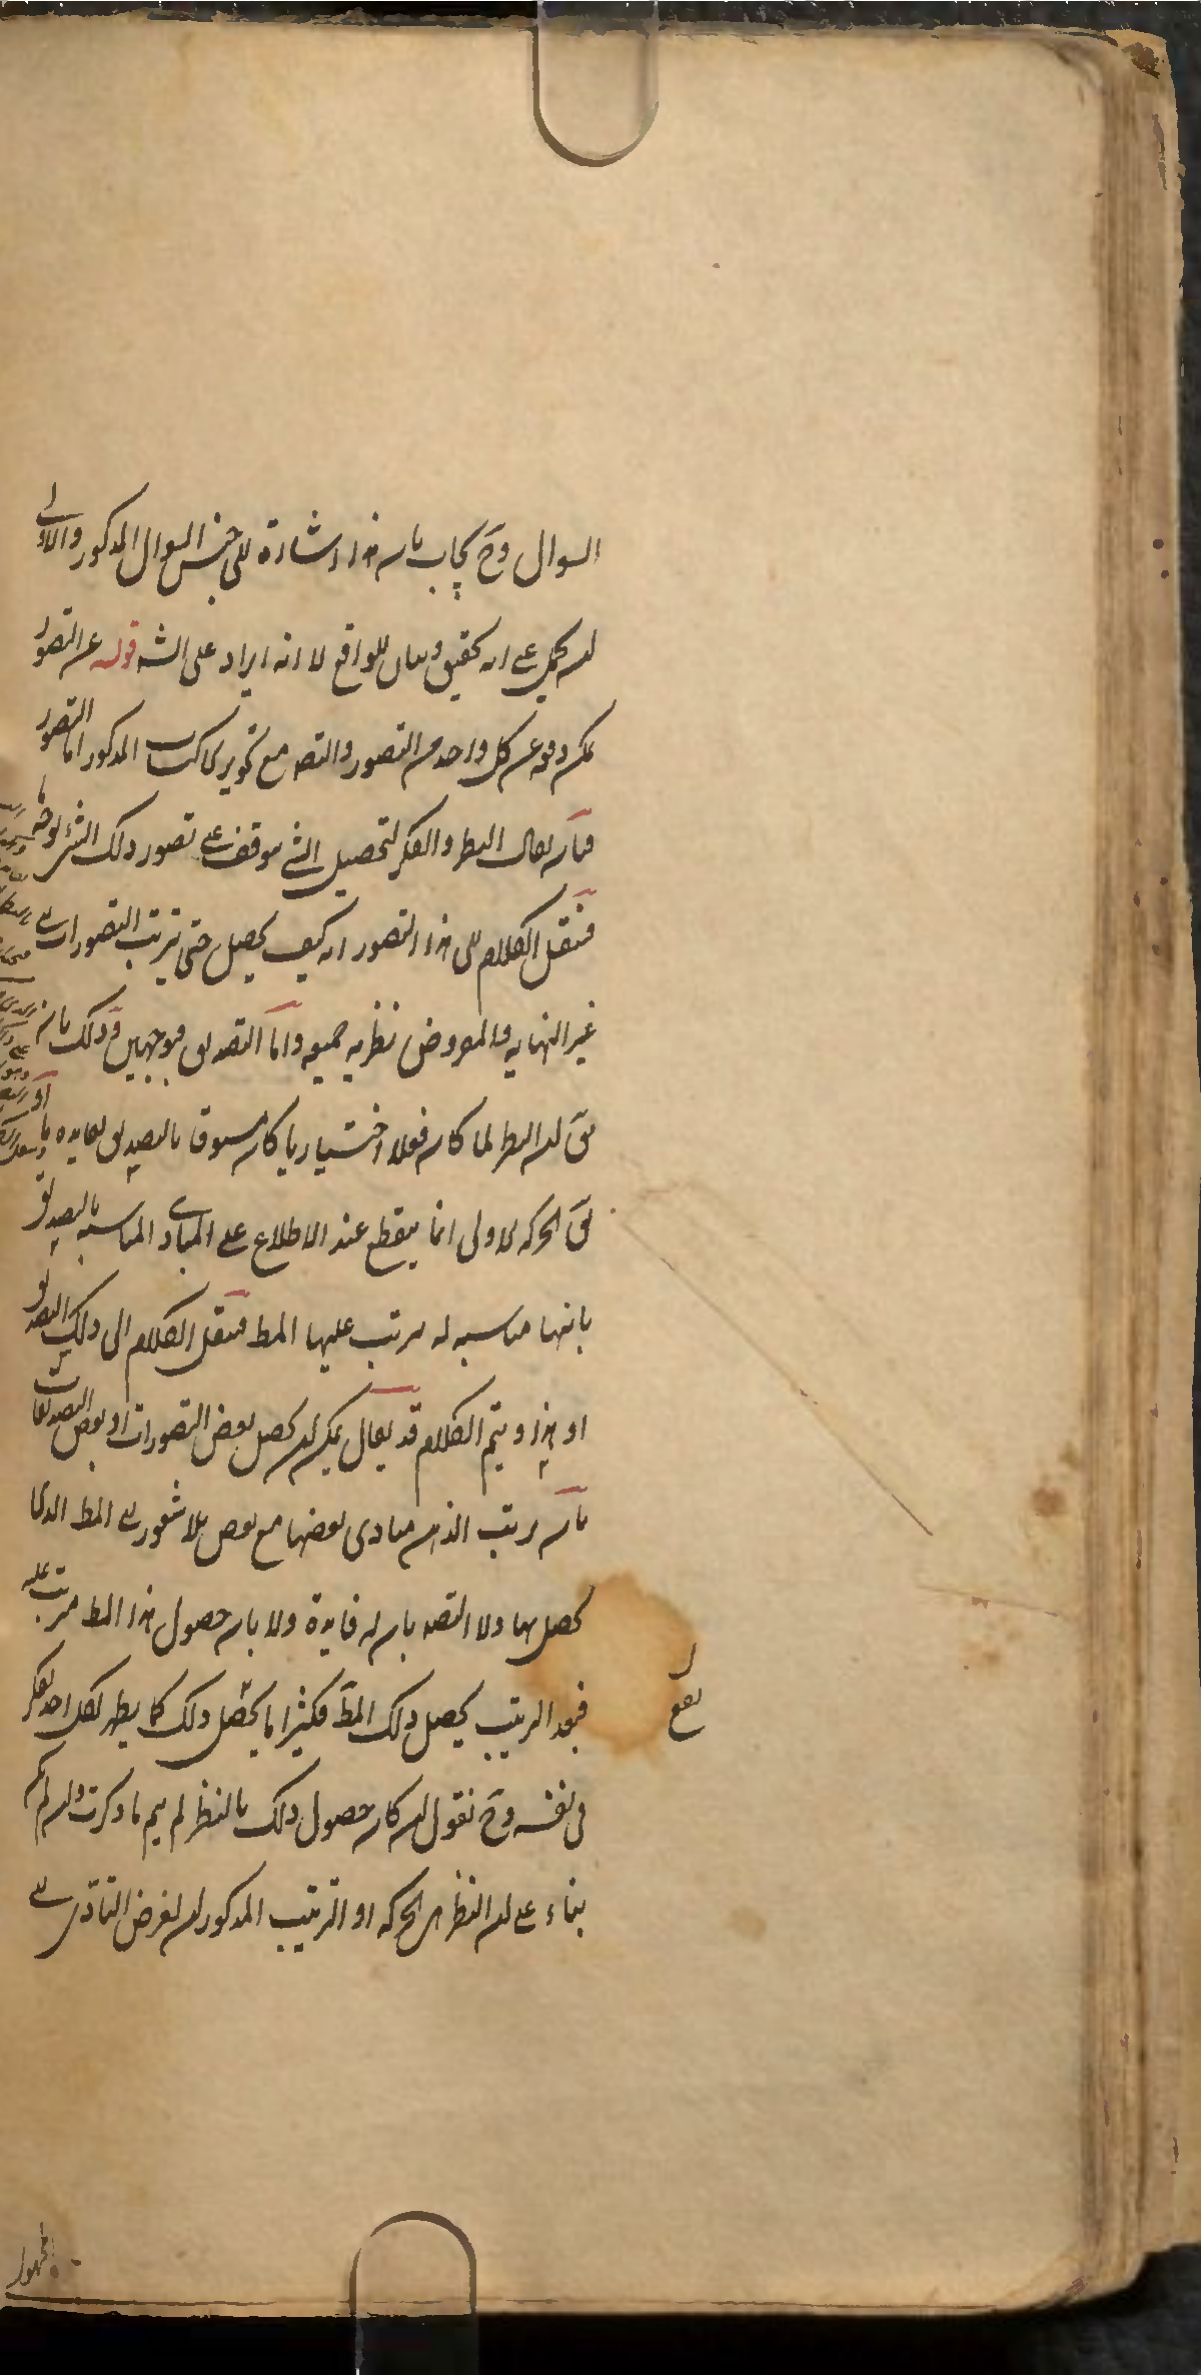 السوال وح يجاب بان هذا اشارة الى جنس السوال المذكور والاولى
ان يحمل على انه تحقيق وبيان للواقع لا انه ايراد على الشه قوله عن التصور
يمكن دفعه عن كل واحد من التصور والتصد مع تجويز المذكور اما التصور
فبان يقال النظر والفكر لتحصيل الشئ موقوف على تصور ذلك الشئ بوجه ما
فننقل الكلام الى هذا التصور انه كيف يحصل حتى يترتب التصورات الى
غير النهاية والمفروض نظرية جميعه واما التصديق فبوجهين وذلك بان
يق ان النظر لما كان فعلا اختياريا كان مسبوقا بالتصديق بفايدة ما او
يق الحركة الاولى انما ينقطع عند الاطلاع على المبادى المناسبة بالتصديق
بانها مناسبة له مرتب عليها المط فننقل الكلام الى ذلك التصديق
او هذا ويتم الكلام قد يقال يمكن ان يحصل بعض التصورات او بعض التصديقات
بان يرتب الذهن مبادى بعضها مع بعض بلا شعور الى المط الذى
يحصل بها ولا التصد بان له فايدة ولا بان حصول هذا المط مرتب عليه
فبعد الترتيب يحصل ذلك المط فكثيرا ما يحصل ذلك كما يظهر لكل احد يفكر
فى نفسه وح نقول ان كان حصول ذلك بالنظر لم يتم ما ذكرت وان لم يكن
بناء على ان النظر هى الحركة او الترتيب المذكور ان لغرض التأدى الى